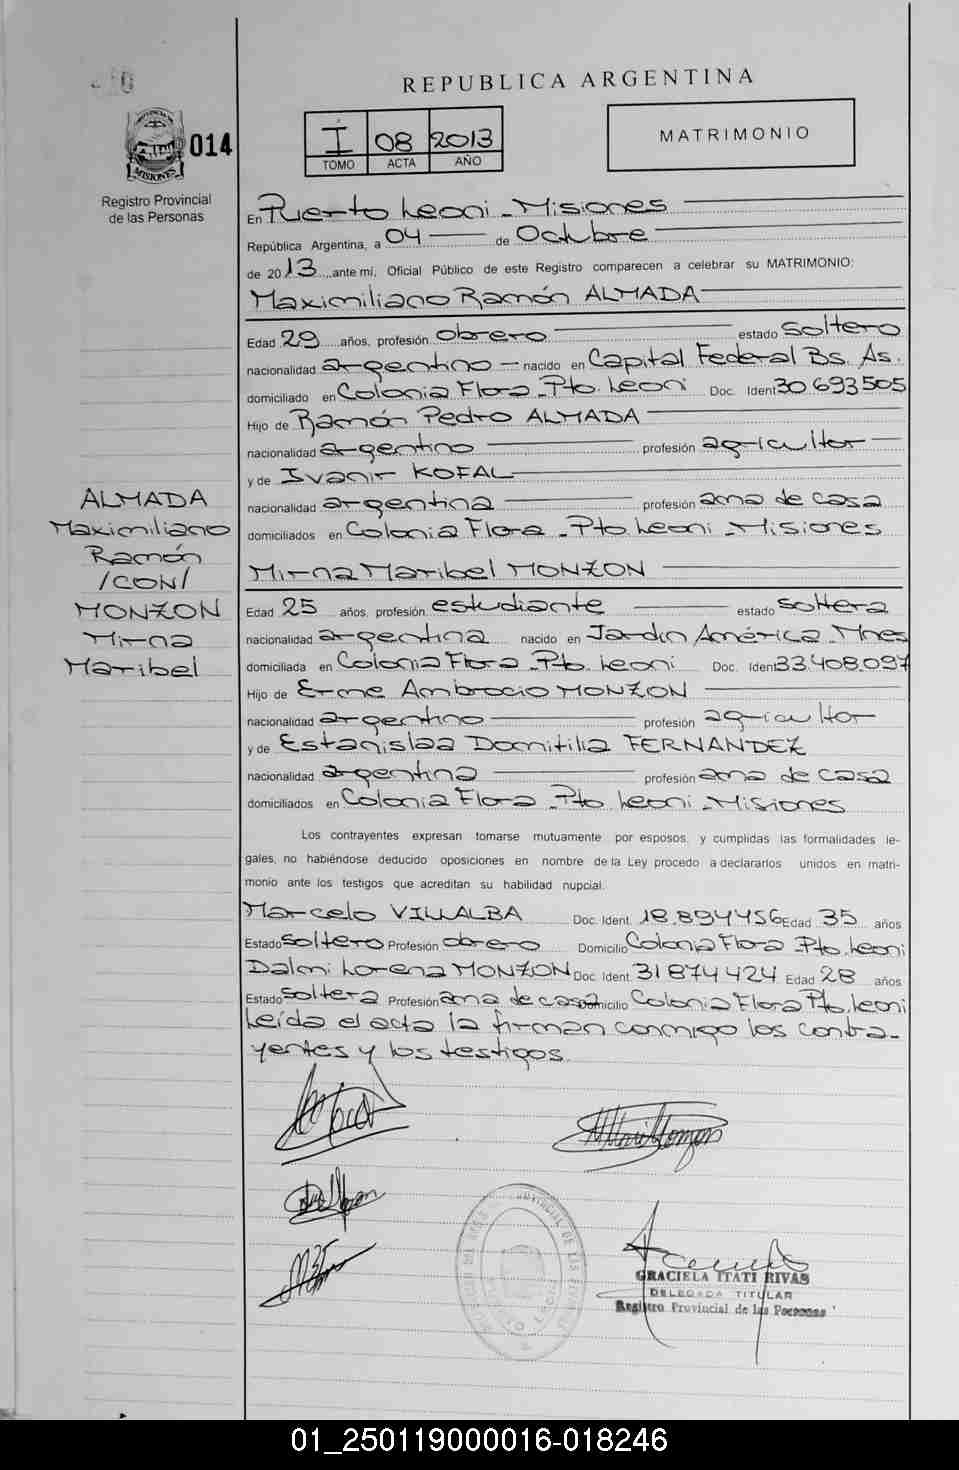 REPUBLICA ARGENTINA
014
Registro Provincial
de las Personas
MISIONES
I 08 2013
TOMO ACTA AÑO
MATRIMONIO
En Puerto Leoni - Misiones
República Argentina, a 04 de Octubre
de 2013 ante mí, Oficial Público de este Registro comparecen a celebrar su MATRIMONIO:
Maximiliano Ramón ALMADA
Edad 29 años, profesión obrero estado soltero
nacionalidad argentino nacido en Capital Federal Bs. As.
domiciliado en Colonia Flora - Pto. Leoni Doc. Ident 30693505
Hijo de Ramón Pedro ALMADA
nacionalidad argentino profesión agricultor
y de Ivanir KOFAL
nacionalidad argentina profesión ama de casa
domiciliados en Colonia Flora - Pto Leoni - Misiones
ALMADA
Maximiliano
Ramón
/CON/
MONZON
Mirna
Maribel
Mirna Maribel MONZON
Edad 25 años, profesión estudiante estado soltera
nacionalidad argentina nacido en Jardín América - Mnes
domiciliada en Colonia Flora - Pto. Leoni Doc. Iden 33.408.097
Hijo de Erme Ambrocio MONZON
nacionalidad argentino profesión agricultor
y de Estanislaa Domitilia FERNANDEZ
nacionalidad argentina profesión ama de casa
domiciliados en Colonia Flora - Pto Leoni - Misiones
Los contrayentes expresan tomarse mutuamente por esposos, y cumplidas las formalidades le-
gales, no habiéndose deducido oposiciones en nombre de la Ley procedo a declararlos unidos en matri-
monio ante los testigos que acreditan su habilidad nupcial.
Marcelo VILLALBA Doc. Ident. 18.894456 Edad 35 años
Estado soltero Profesión obrero Domicilio Colonia Flora - Pto. Leoni
Dalmi Lorena MONZON Doc. Ident. 31874424 Edad 28 años
Estado soltera Profesión ama de casa Domicilio Colonia Flora Pto. Leoni
Leída el acta la firman conmigo los contra-
yentes y los testigos.
GRACIELA ITATI RIVAS
DELEGADA TITULAR
Registro Provincial de las Personas
01_250119000016-018246